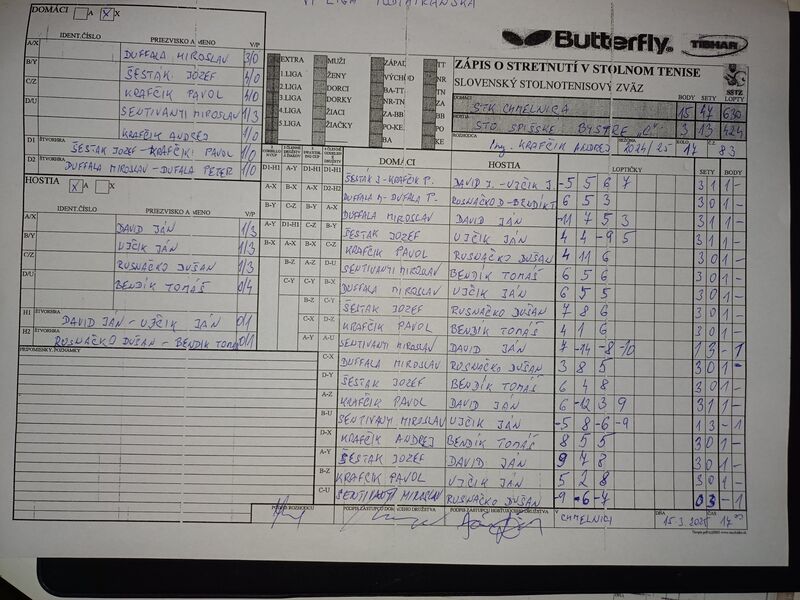 VI LIGA PODTATRANSKA
DOMÁCI A X X
Butterfly TIBHAR
IDENT.ČÍSLO PRIEZVISKO A MENO V/P
A/X DUFFALA MIROSLAV 3/0
B/Y ŠESTÁK JOZEF 4/0
C/Z KRAFČÍK PAVOL 4/0
D/U SENTIVANYI MIROSLAV 1/3
KRAFČÍK ANDREJ 1/0
D1 ŠTVORHRA ŠESTÁK JOZEF - KRAFČÍK PAVOL 1/0
D2 ŠTVORHRA DUFFALA MIROSLAV - DUFALA PETER 1/0
EXTRA
1.LIGA
2.LIGA
3.LIGA
4.LIGA
5.LIGA
MUŽI
ŽENY
DORCI
DORKY
ŽIACI
ŽIAČKY
ZÁPAD
VÝCHOD
BA-TT
NR-TN
ZA-BB
PO-KE
BA
TT
NR
TN
ZA
BB
PO
KE
ZÁPIS O STRETNUTÍ V STOLNOM TENISE
SLOVENSKÝ STOLNOTENISOVÝ ZVÄZ
SSTZ
BODY SETY LOPTY
DOMÁCI STK CHMELNICA 15 47 630
HOSTIA STO SPIŠSKE BYSTRE "C" 3 13 424
ROZHODCA Ing. KRAFČÍK ANDREJ 2024/25 KOLO 17 Č. 83
HOSTIA X A X
IDENT.ČÍSLO PRIEZVISKO A MENO V/P
A/X DAVID JÁN 1/3
B/Y UJČIK JÁN 1/3
C/Z RUSNAČKO DUŠAN 1/3
D/U BENDÍK TOMÁŠ 0/4
H1 ŠTVORHRA DAVID JÁN - UJČIK JÁN 0/1
H2 ŠTVORHRA RUSNAČKO DUŠAN - BENDÍK TOMÁŠ 0/1
PRIPOMIENKY, POZNÁMKY
DOMÁCI HOSTIA LOPTIČKY SETY BODY
D1-H1 D1-H1 D1-H1 ŠESTÁK J.-KRAFČÍK P. DAVID J.-UJČIK J. -5 5 6 7 3 1 1 -
A-X B-X A-X D2-H2 DUFFALA M-DUFALA P. RUSNAČKO D-BENDÍK T 6 5 3 3 0 1 -
B-Y C-Z B-X A-X DUFFALA MIROSLAV DAVID JÁN -11 7 5 3 3 1 1 -
A-Y D1-H1 C-Z B-Y ŠESTÁK JOZEF UJČIK JÁN 4 4 -9 5 3 1 1 -
B-X A-X B-X C-Z KRAFČÍK PAVOL RUSNAČKO DUŠAN 4 11 6 3 0 1 -
B-Z A-Z D-U SENTIVANYI MIROSLAV BENDÍK TOMÁŠ 6 5 6 3 0 1 -
C-Y C-Y B-X DUFFALA MIROSLAV UJČIK JÁN 6 5 5 3 0 1 -
B-Z C-Y ŠESTÁK JOZEF RUSNAČKO DUŠAN 7 8 6 3 0 1 -
C-X D-Z KRAFČÍK PAVOL BENDÍK TOMÁŠ 4 1 6 3 0 1 -
A-Y A-U SENTIVANYI MIROSLAV DAVID JÁN 7 -14 -8 -10 1 3 - 1
C-X DUFFALA MIROSLAV RUSNAČKO DUŠAN 3 8 5 3 0 1 -
D-Y ŠESTÁK JOZEF BENDÍK TOMÁŠ 6 4 8 3 0 1 -
A-Z KRAFČÍK PAVOL DAVID JÁN 6 -12 3 9 3 1 1 -
B-U SENTIVANYI MIROSLAV UJČIK JÁN -5 8 -6 -9 1 3 - 1
D-X KRAFČÍK ANDREJ BENDÍK TOMÁŠ 8 5 5 3 0 1 -
A-Y ŠESTÁK JOZEF DAVID JÁN 9 7 8 3 0 1 -
B-Z KRAFČÍK PAVOL UJČIK JÁN 5 2 8 3 0 1 -
C-U SENTIVANYI MIROSLAV RUSNAČKO DUŠAN -9 -6 -7 0 3 - 1
PODPIS ROZHODCU PODPIS ZÁSTUPCU DOMÁCEHO DRUŽSTVA PODPIS ZÁSTUPCU HOSŤUJÚCEHO DRUŽSTVA V CHMELNICI DŇA 15.3.2025 ČAS 17 00